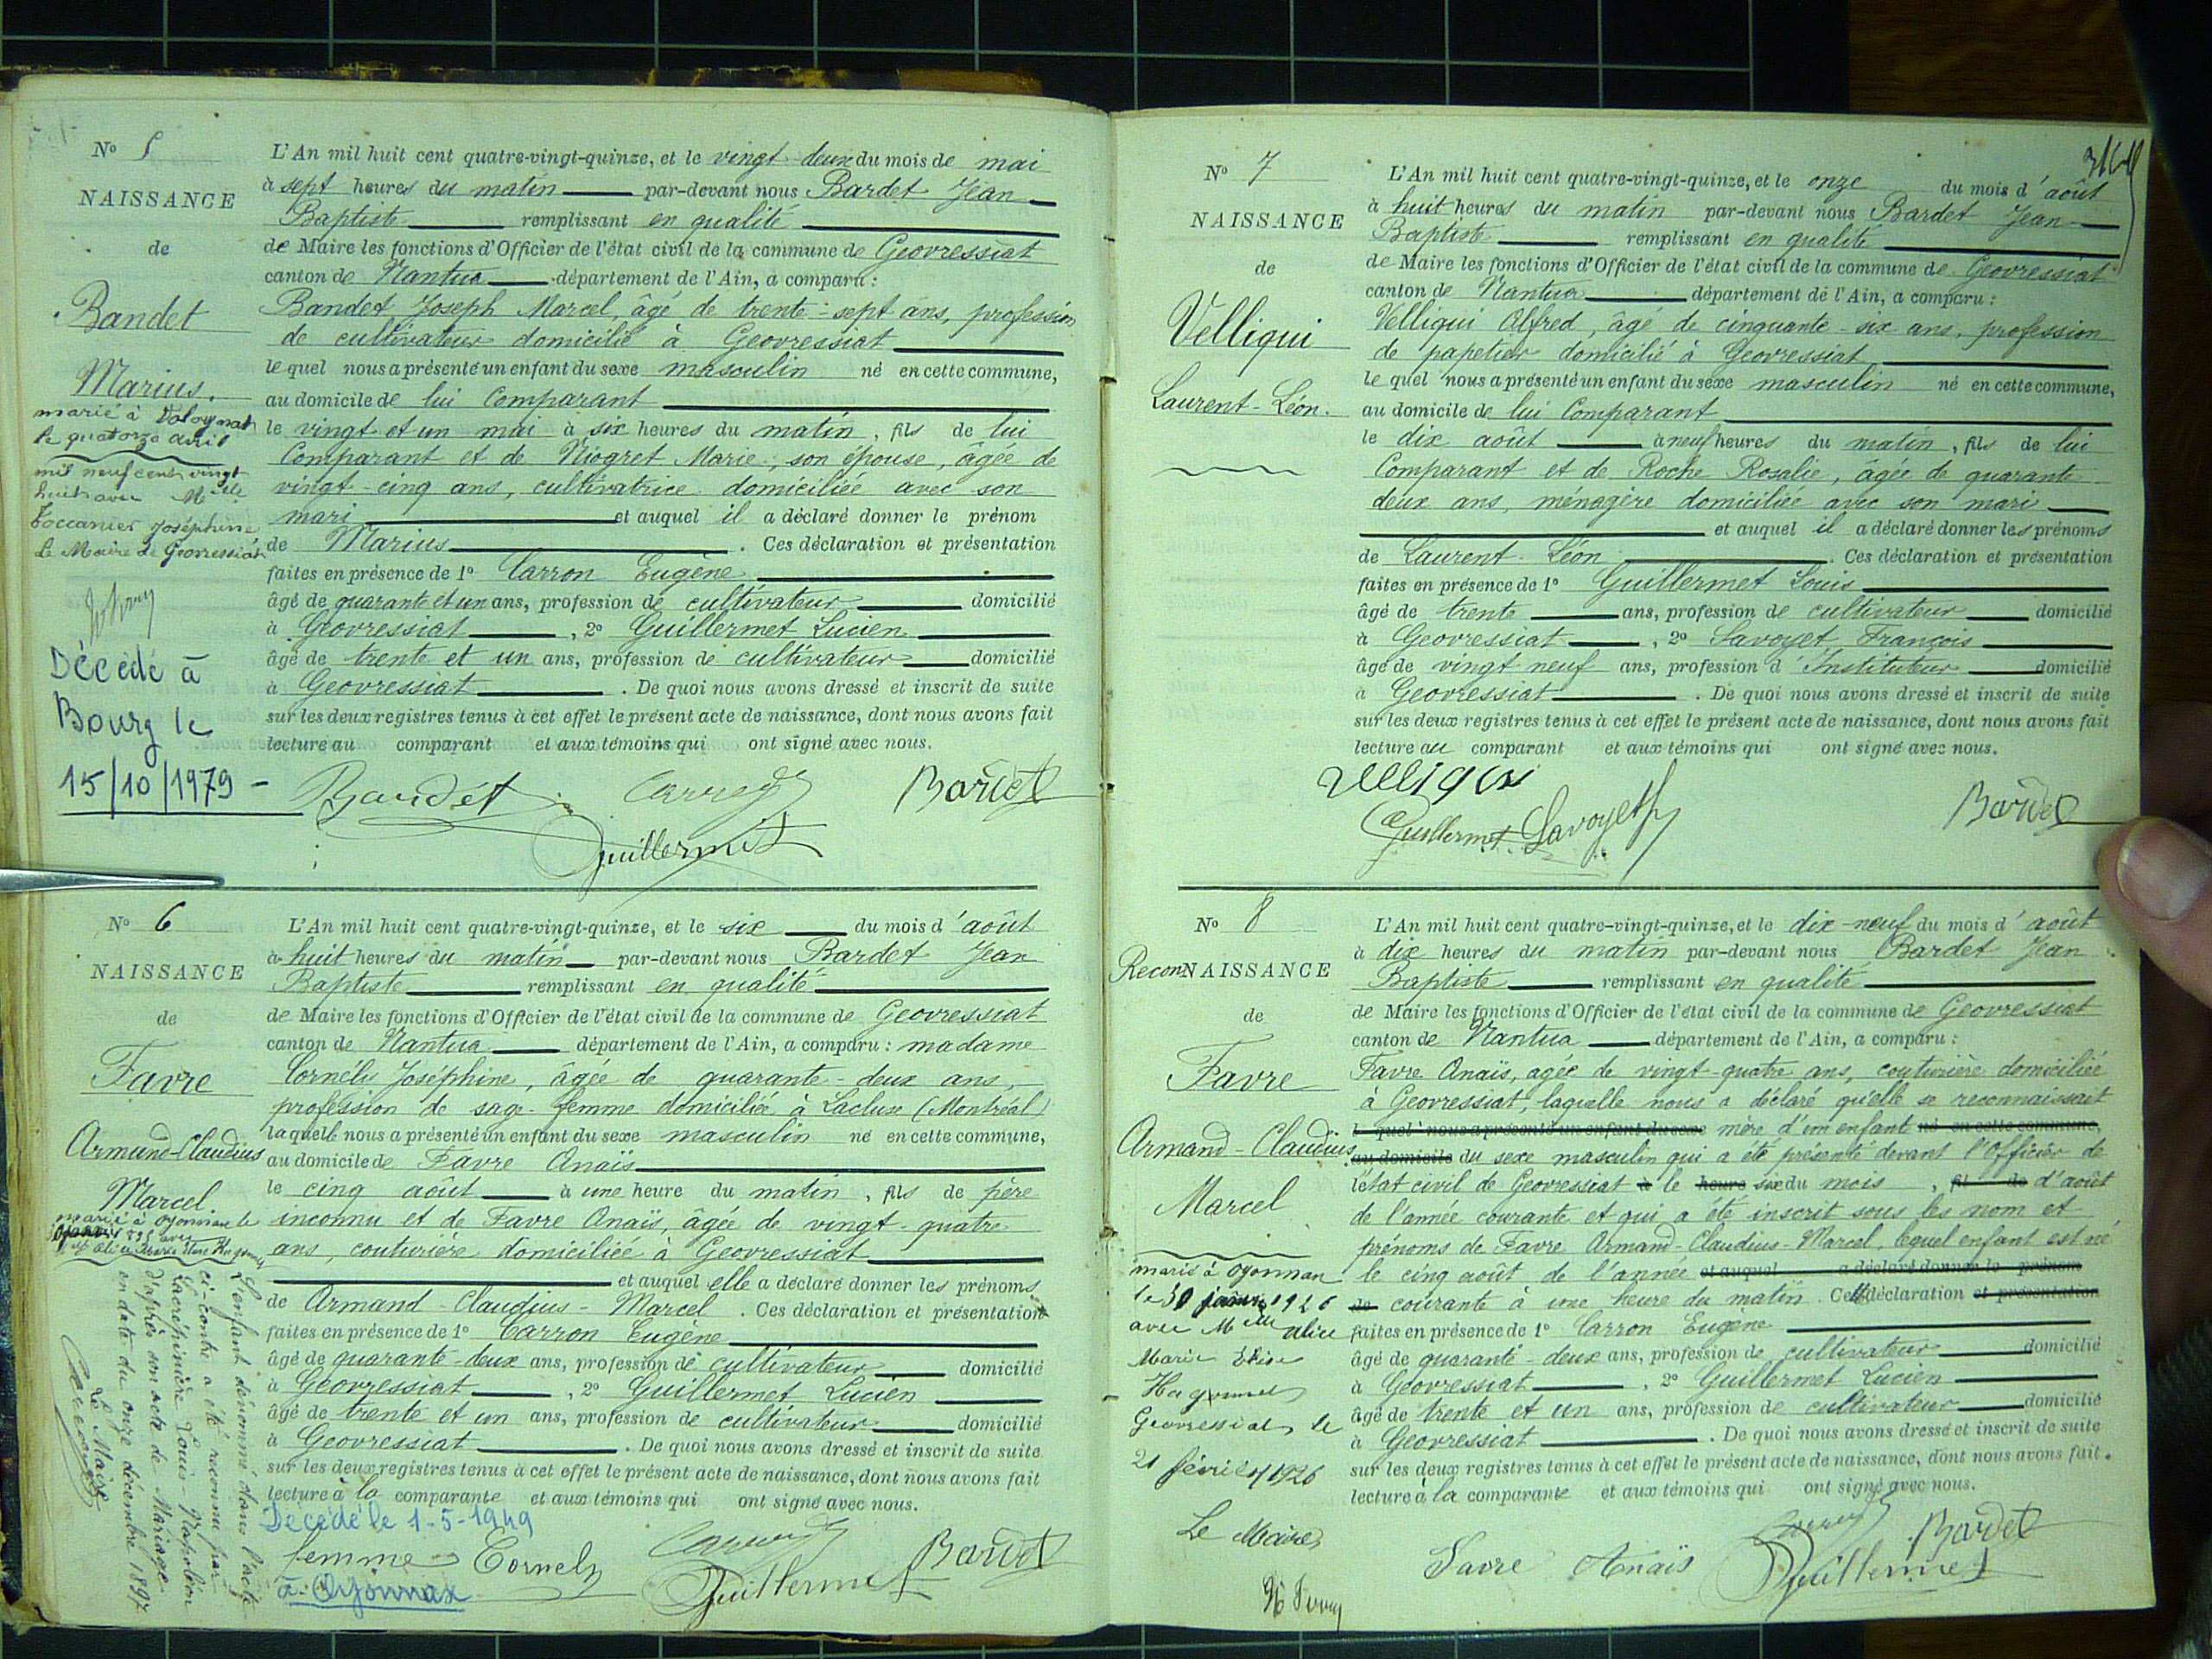 No 5
NAISSANCE
de
Bandet
Marius.
marié à
le quatorze avril
mil neuf cent vingt
huit avec Melle
Joséphine
Le Maire de Geovressiat
Décédé à
Bourg le
15/10/1979 -
L'An mil huit cent quatre-vingt-quinze, et le vingt-deux du mois de mai
à sept heures du matin par-devant nous Bardet Jean
Baptiste remplissant en qualité
de Maire les fonctions d'Officier de l'état civil de la commune de Geovressiat
canton de Nantua département de l'Ain, a comparu :
Bandet Joseph Marcel, âgé de trente-sept ans, profession
de cultivateur domicilié à Geovressiat
lequel nous a présenté un enfant du sexe masculin né en cette commune,
au domicile de lui Comparant
le vingt et un mai à six heures du matin, fils de lui
Comparant et de Niogret Marie, son épouse, âgée de
vingt-cinq ans, cultivatrice domiciliée avec son
mari et auquel il a déclaré donner le prénom
de Marius. Ces déclaration et présentation
faites en présence de 1o Carron Eugène
âgé de quarante et un ans, profession de cultivateur domicilié
à Geovressiat, 2o Guillermet Lucien
âgé de trente et un ans, profession de cultivateur domicilié
à Geovressiat. De quoi nous avons dressé et inscrit de suite
sur les deux registres tenus à cet effet le présent acte de naissance, dont nous avons fait
lecture au comparant et aux témoins qui ont signé avec nous.
Bandet Carron Bardet
Guillermet
No 6
NAISSANCE
de
Favre
Armand-Claudius
Marcel.
marié à Oyonnax le
L'enfant dénommé dans l'acte
ci-contre a été reconnu par
Louis-Napoléon
d'après son acte de Mariage
en date du onze décembre 1897
Le Maire
L'An mil huit cent quatre-vingt-quinze, et le six du mois d'août
à huit heures du matin par-devant nous Bardet Jean
Baptiste remplissant en qualité
de Maire les fonctions d'Officier de l'état civil de la commune de Geovressiat
canton de Nantua département de l'Ain, a comparu : madame
Cornely Joséphine, âgée de quarante-deux ans,
profession de sage-femme domiciliée à Lacluse (Montréal)
laquelle nous a présenté un enfant du sexe masculin né en cette commune,
au domicile de Favre Anaïs
le cinq août à une heure du matin, fils de père
inconnu et de Favre Anaïs, âgée de vingt-quatre
ans, couturière domiciliée à Geovressiat
et auquel elle a déclaré donner les prénoms
de Armand-Claudius-Marcel. Ces déclaration et présentation
faites en présence de 1o Carron Eugène
âgé de quarante-deux ans, profession de cultivateur domicilié
à Geovressiat, 2o Guillermet Lucien
âgé de trente et un ans, profession de cultivateur domicilié
à Geovressiat. De quoi nous avons dressé et inscrit de suite
sur les deux registres tenus à cet effet le présent acte de naissance, dont nous avons fait
lecture à la comparante et aux témoins qui ont signé avec nous.
Décédé le 1-5-1949
femme Cornely Carron Bardet
à Oyonnax Guillermet
No 7
NAISSANCE
de
Velliqui
Laurent-Léon.
L'An mil huit cent quatre-vingt-quinze, et le onze du mois d'août
à huit heures du matin par-devant nous Bardet Jean
Baptiste remplissant en qualité
de Maire les fonctions d'Officier de l'état civil de la commune de Geovressiat
canton de Nantua département de l'Ain, a comparu :
Velliqui Alfred, âgé de cinquante-six ans, profession
de papetier domicilié à Geovressiat
lequel nous a présenté un enfant du sexe masculin né en cette commune,
au domicile de lui Comparant
le dix août à neuf heures du matin, fils de lui
Comparant et de Roche Rosalie, agée de quarante
deux ans, ménagère domiciliée avec son mari
et auquel il a déclaré donner les prénoms
de Laurent-Léon. Ces déclaration et présentation
faites en présence de 1o Guillermet Louis
âgé de trente ans, profession de cultivateur domicilié
à Geovressiat, 2o Savoyet François
âgé de vingt neuf ans, profession d'Instituteur domicilié
à Geovressiat. De quoi nous avons dressé et inscrit de suite
sur les deux registres tenus à cet effet le présent acte de naissance, dont nous avons fait
lecture au comparant et aux témoins qui ont signé avec nous.
Velliqui
Guillermet Savoyet Bardet
No 8
ReconNAISSANCE
de
Favre
Armand-Claudius
Marcel
marié à Oyonnax
le 30 janvier 1926
avec Melle Alice
Marie Elise
Geovressiat le
21 février 1926
Le Maire
L'An mil huit cent quatre-vingt-quinze, et le dix-neuf du mois d'août
à dix heures du matin par-devant nous Bardet Jean
Baptiste remplissant en qualité
de Maire les fonctions d'Officier de l'état civil de la commune de Geovressiat
canton de Nantua département de l'Ain, a comparu :
Favre Anaïs, agée de vingt-quatre ans, couturière domiciliée
à Geovressiat, laquelle nous a déclaré qu'elle se reconnaissait
lequel nous a présenté un enfant du sexe mère d'un enfant né en cette commune,
au domicile du sexe masculin qui a été présenté devant l'Officier de
létat civil de Geovressiat à le heure six du mois, fil de d'août
de l'année courante et qui a été inscrit sous les nom et
prénoms de Favre Armand-Claudius-Marcel, lequel enfant est né
le cinq août de l'année et auquel a déclaré donner le prénom
de courante à une heure du matin. Cette déclaration et présentation
faites en présence de 1o Carron Eugène
âgé de quarante-deux ans, profession de cultivateur domicilié
à Geovressiat, 2o Guillermet Lucien
âgé de trente et un ans, profession de cultivateur domicilié
à Geovressiat. De quoi nous avons dressé et inscrit de suite
sur les deux registres tenus à cet effet le présent acte de naissance, dont nous avons fait
lecture à la comparante et aux témoins qui ont signé avec nous.
Carron Bardet
Favre Anaïs Guillermet